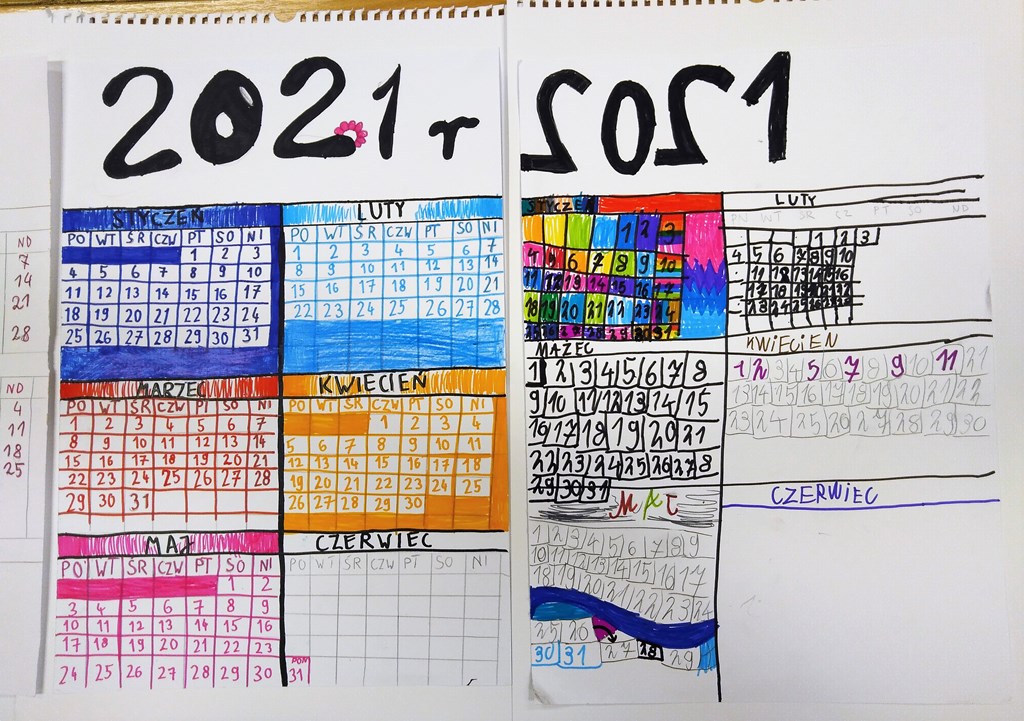 ND
7
14
21
28
ND
4
11
18
25
2021 r
STYCZEŃ
PO WT ŚR CZW PT SO NI
1 2 3
4 5 6 7 8 9 10
11 12 13 14 15 16 17
18 19 20 21 22 23 24
25 26 27 28 29 30 31
LUTY
PO WT ŚR CZW PT SO NI
1 2 3 4 5 6 7
8 9 10 11 12 13 14
15 16 17 18 19 20 21
22 23 24 25 26 27 28
MARZEC
PO WT ŚR CZW PT SO NI
1 2 3 4 5 6 7
8 9 10 11 12 13 14
15 16 17 18 19 20 21
22 23 24 25 26 27 28
29 30 31
KWIECIEŃ
PO WT ŚR CZW PT SO NI
1 2 3 4
5 6 7 8 9 10 11
12 13 14 15 16 17 18
19 20 21 22 23 24 25
26 27 28 29 30
MAJ
PO WT ŚR CZW PT SO NI
1 2
3 4 5 6 7 8 9
10 11 12 13 14 15 16
17 18 19 20 21 22 23
24 25 26 27 28 29 30
PON
31
CZERWIEC
PO WT ŚR CZW PT SO NI
2021
STYCZEŃ
1 2 3
4 5 6 7 8 9 10
11 12 13 14 15 16 17
18 19 20 21 22 23 24
25 26 27 28 29 30 31
LUTY
PN WT ŚR CZ PT SO ND
1 2 3
4 5 6 7 8 9 10
MAZEC
1 2 3 4 5 6 7 8
9 10 11 12 13 14 15
16 17 18 19 20 21
22 23 24 25 26 27 8
29 30 31
KWIECIEŃ
1 2 3 4 5 6 7 8 9 10 11 21
13 14 15 16 17 18 19 20 21 22
23 24 25 26 27 28 29 30
MAJ
1 2 3 4 5 6 7 8 9
10 11 12 13 14 15 16 17
18 19 20 21 22 23 24
25 26
30 31 27 28 29
CZERWIEC